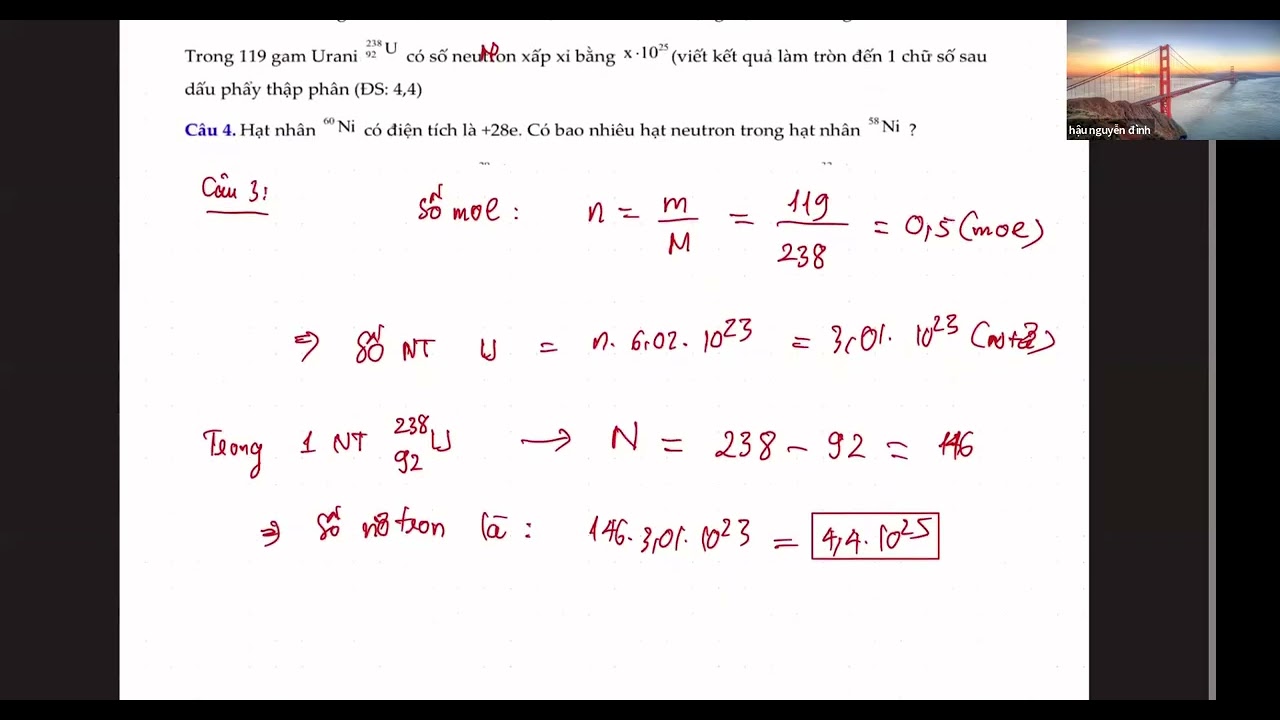 Trong 119 gam Urani ²³⁸₉₂U có số neutron xấp xỉ bằng x·10²⁵ (viết kết quả làm tròn đến 1 chữ số sau
dấu phẩy thập phân (ĐS: 4,4)
hậu nguyễn đình
Câu 4. Hạt nhân ⁶⁰Ni có điện tích là +28e. Có bao nhiêu hạt neutron trong hạt nhân ⁵⁸Ni ?
Câu 3:
Số mol : n = m/M = 119/238 = 0,5 (mol)
⇒ Số NT U = n. 6,02. 10²³ = 3,01. 10²³
Trong 1 NT ²³⁸₉₂U → N = 238 - 92 = 146
⇒ Số nơtron là : 146. 3,01. 10²³ = 4,4. 10²⁵